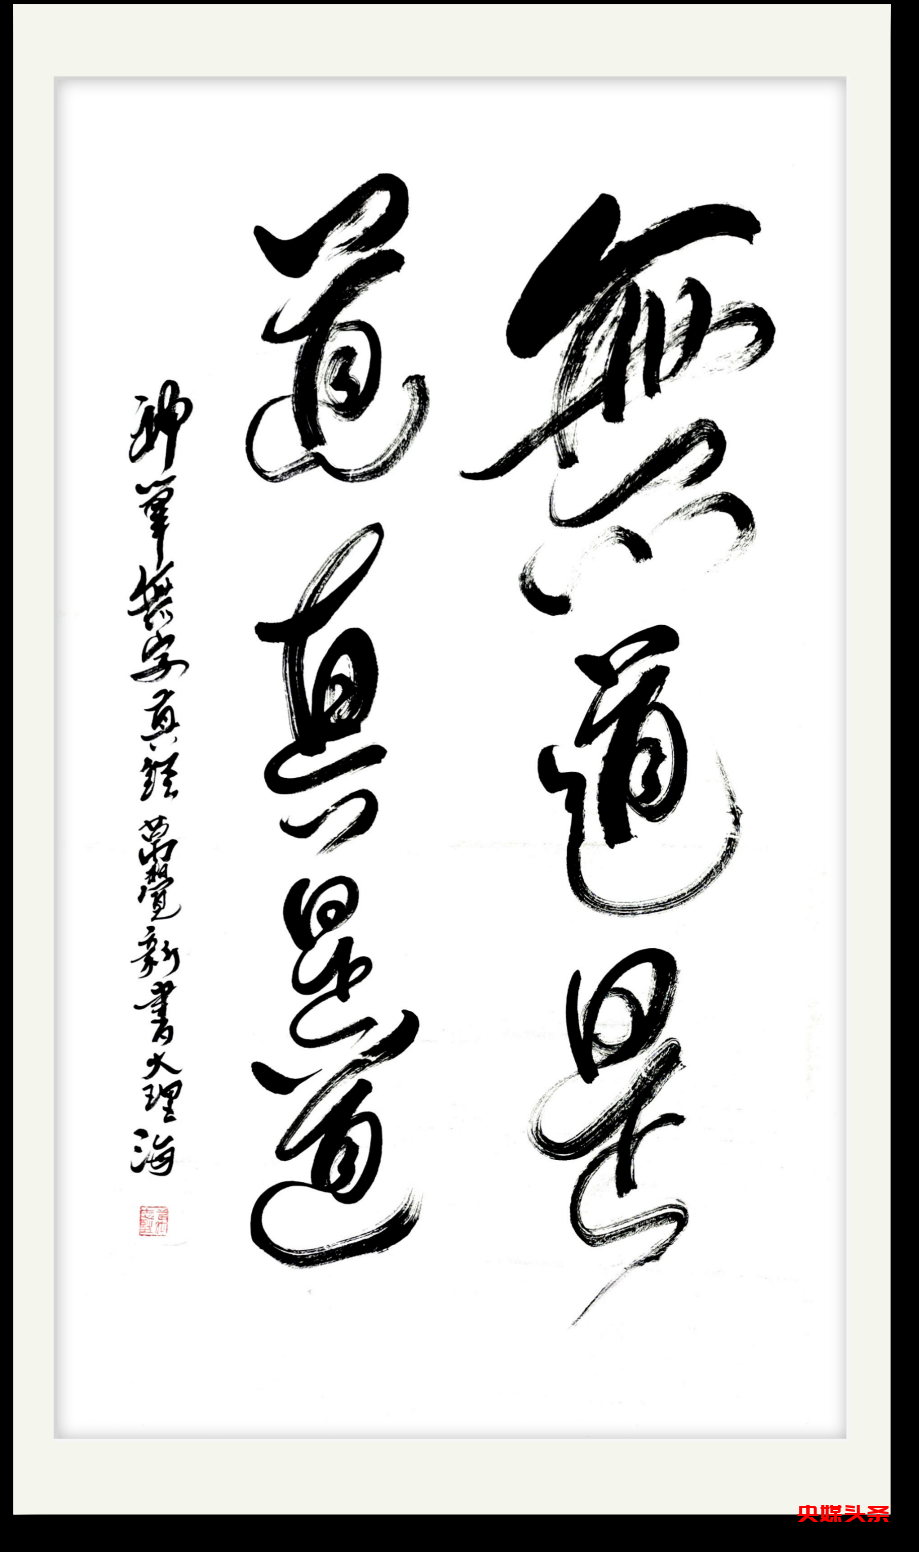 無道是
道真是道
神筆無字真經 萬覺新書大理海
央媒头条